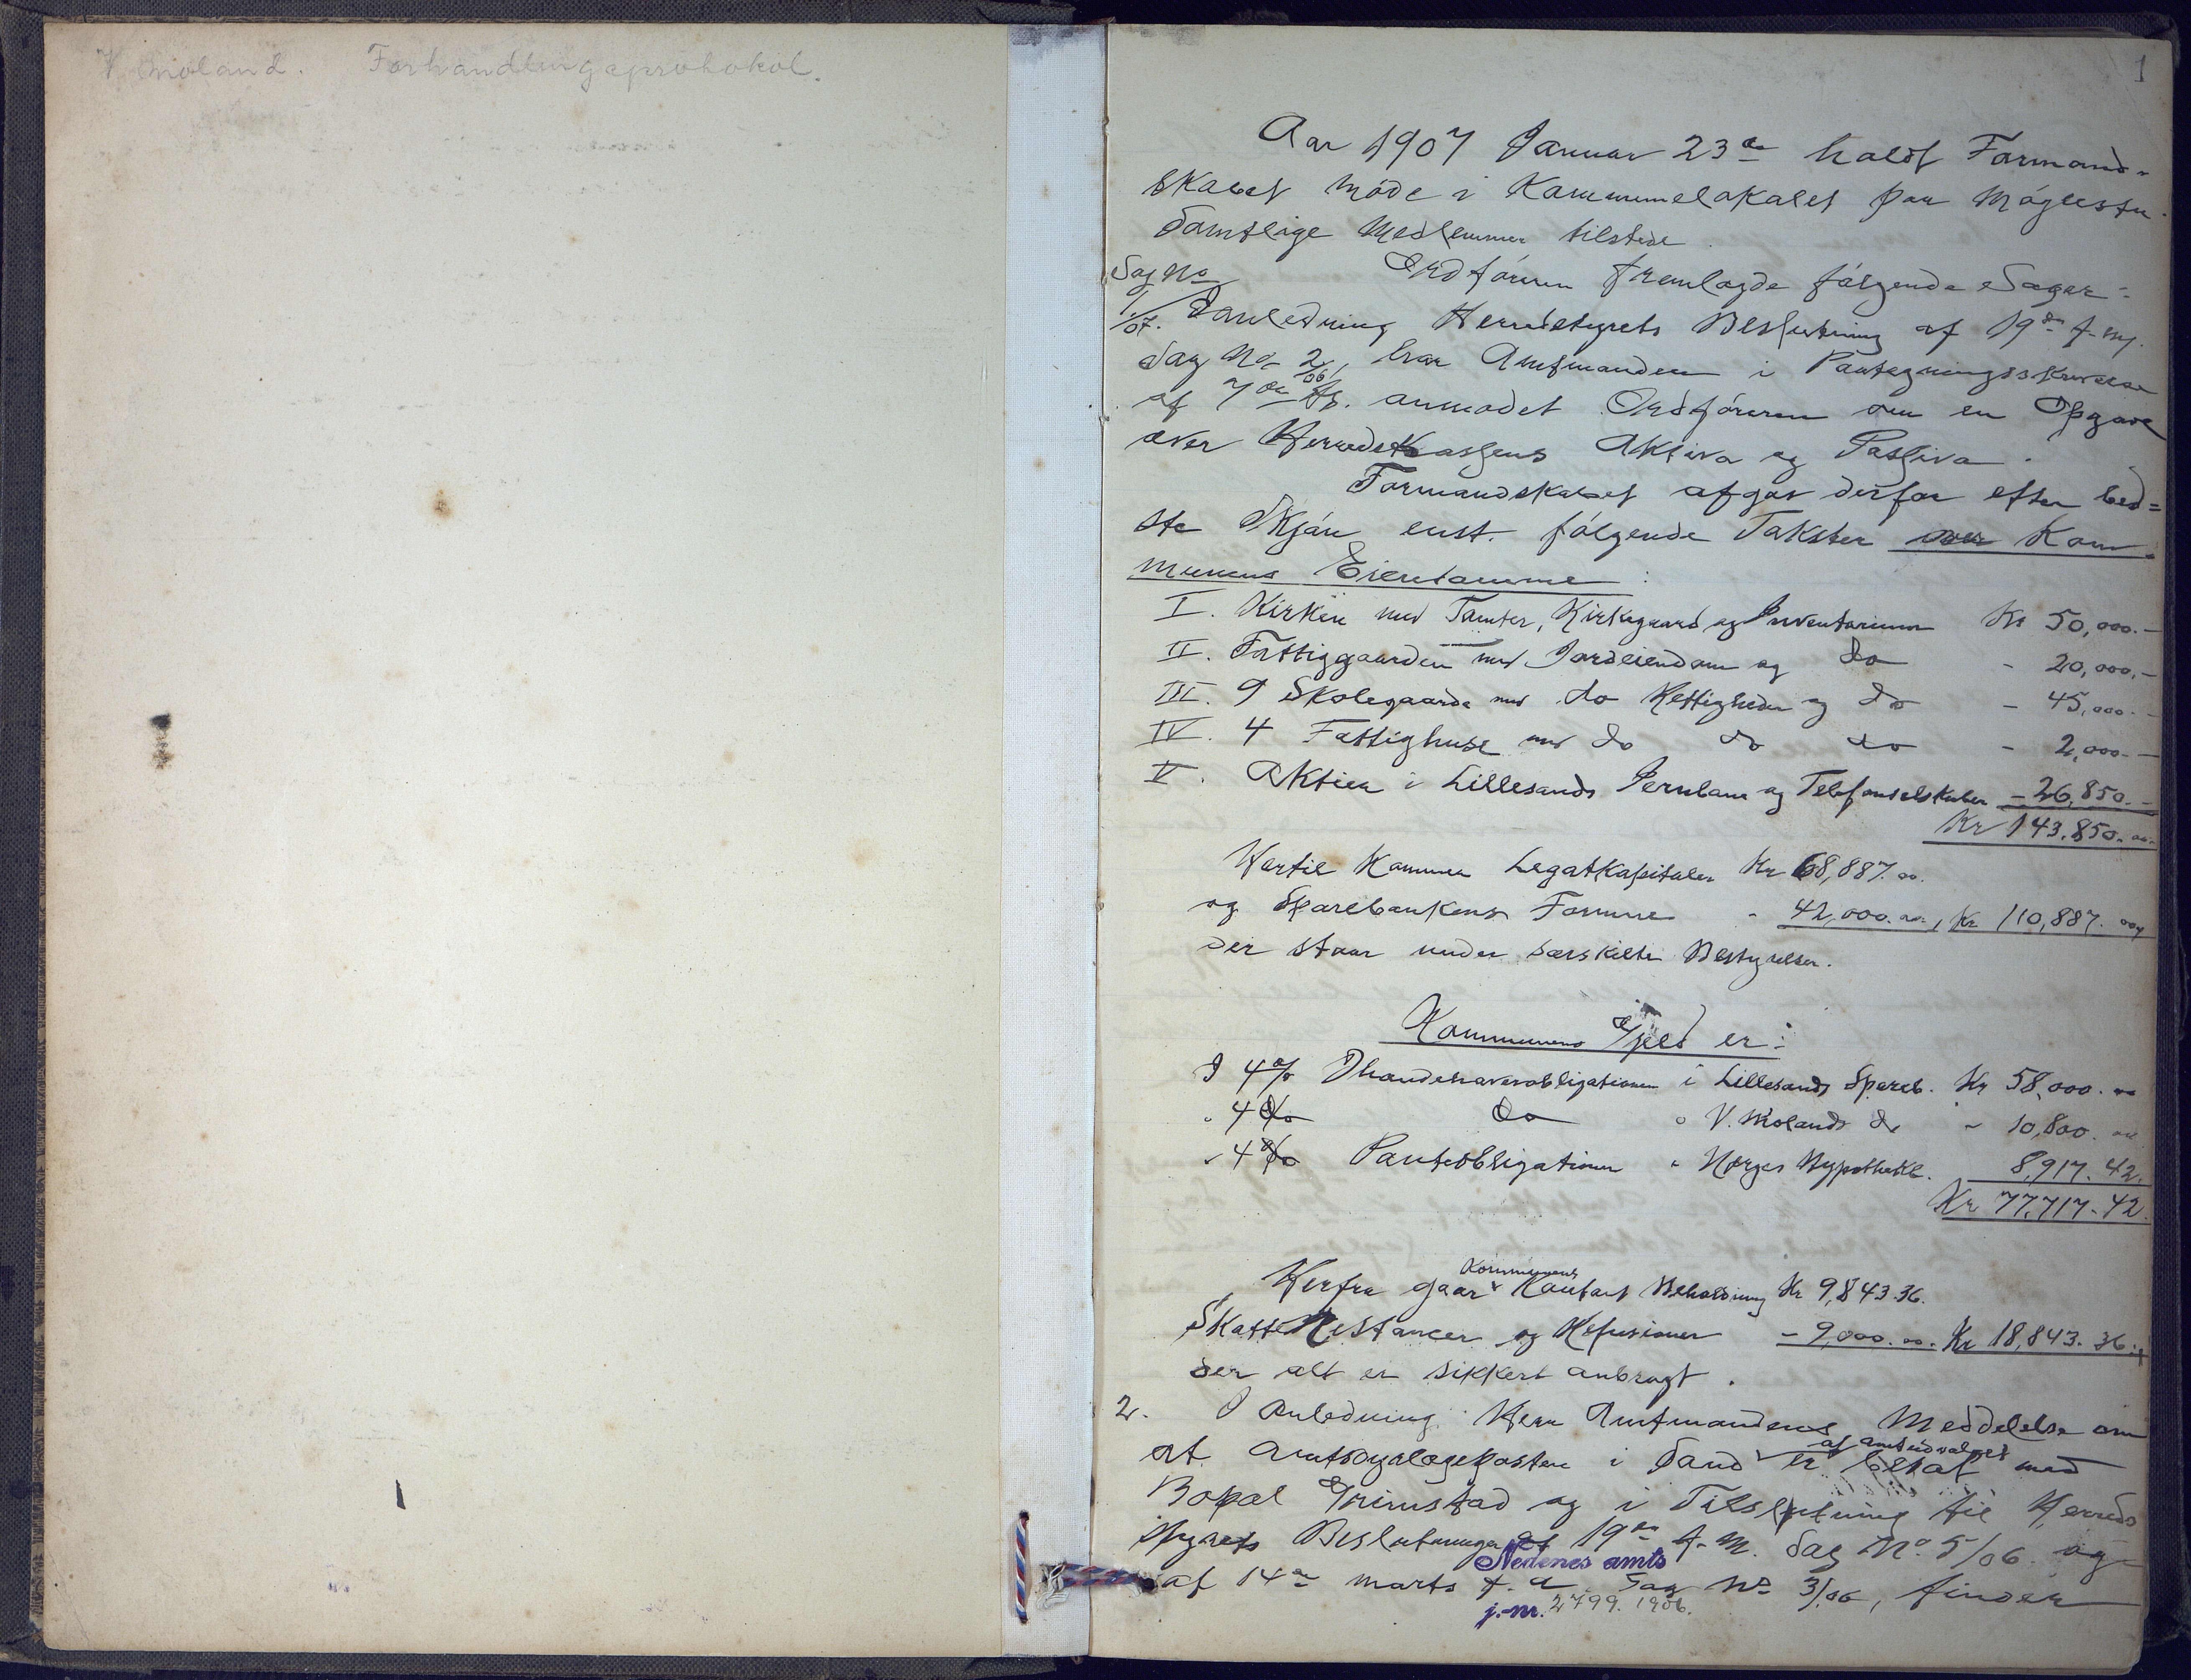 V. Moland. Forhandlingsprotokol.
1
Aar 1907 Januar 23de holdt Formand-
skabet Møde i Kommunelokalet paa Møglestu.
Samtlige Medlemmer tilstede.
Sag No Ordføreren fremlagde følgende Sager:
1/07. I Anledning Herredstyrets Beslutning af 19de f. m.
Sag No 2/06, har Amtmanden i Paategningsskrivelse
af 7de ds. anmodet Ordføreren om en Opgave
over Herredskassens Aktiva og Passiva.
Formandskabet afgav derfor efter bed=
ste Skjøn enst. følgende Takster over Kom-
munens Eiendomme:
I. Kirken med Tomter, Kirkegaard og Inventarium Kr 50,000.-
II. Fattiggaarden med Jordeiendom og do - 20,000.-
III. 9 Skolegaarde med do Rettigheder og do - 45,000.-
IV. 4 Fattighuse med do do do - 2,000.-
V. Aktier i Lillesands Jernbane og Telefonselskaber - 26,850.-
Kr 143.850.oo.
Hertil kommer Legatkapitaler Kr 68,887.oo.
og Sparebankens Formue - 42,000.oo, Kr 110,887.oo,
der staar under særskilte Bestyrelser.
Kommunens Gjeld er:
I 4% Ihændehaverobligationer i Lillesands Spareb. Kr 58,000.oo
" 4% do " V. Molands do " 10,800.oo
" 4% Panteobligationer " Norges Hypothekb. 8,917.42.
Kr 77,717.42.
Herfra gaar Kommunens Kontant Beholdning Kr 9,843.36.
Skatte Restancer og Refusioner - 9,000.oo. Kr 18,843.36.
der alt er sikkert anbragt.
2. I Anledning Herr Amtmandens Meddelelse om
at Amtsdyrlægeposten i Sand er af amtsudvalget besat med
Bopæl Grimstad og i Tilslutning til Herreds
styrets Beslutninger af 19de f. M. Sag No 5/06 og
af 14de marts f. a. Sag No 3/06, finder
Nedenes amts
j.-nr. 2799. 1906.